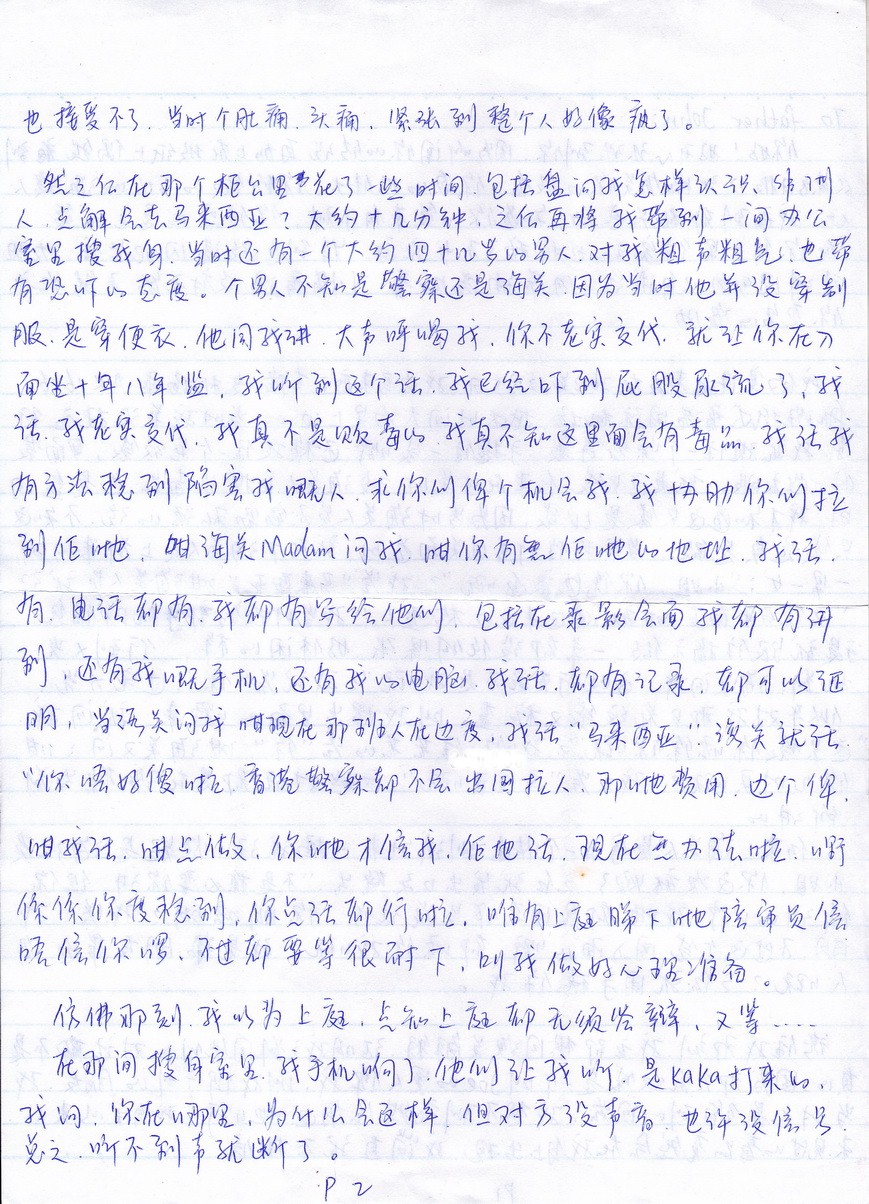 也接受不了. 当时个肚痛. 头痛. 紧张到整个人好像疯了。
然之后在那个柜台里花了一些时间 包括盘问我怎样认识
人. 点解会去马来西亚? 大约十几分钟. 之后再将我带到一间办公
室里搜我身. 当时还有一个大约四十几岁的男人. 对我粗声粗气也带
有恐吓的态度。个男人不知是警察还是海关. 因为当时他并没穿制
服. 是穿便衣. 他同我讲. 大声呼喝我. 你不老实交代. 就让你在入
面坐十年八年监. 我听到这个话. 我已经吓到屁股尿流了. 我
话. 我老实交代. 我真不是贩毒的. 我真不知这里面会有毒品. 我话我
有方法稳到陷害我嘅人. 求你们俾个机会我. 我协助你们拉
到佢哋. 咁海关Madam问我. 咁你有無佢哋的地址. 我话.
有. 电话却有. 我却有写给他们. 包括在录影会面我却有讲
到. 还有我嘅手机. 还有我的电脑. 我话. 却有记录. 却可以证
明. 当海关问我 咁现在那利人在边度. 我话 "马来西亚" 海关就话.
"你唔好傻啦. 香港警察却不会出国拉人. 那啲费用. 边个俾.
咁我话. 咁点做. 你哋才信我. 佢地话. 现在无办法啦. 嘢
係係你度稳到. 你点话却行啦. 唯有上庭睇下啲陪审员信
唔信你啰. 不过却要等很耐下. 叫我做好心理准备。
仿佛那刻. 我以为上庭. 点知上庭却无须答辩. 又等.....
在那间搜身室里. 我手机响了. 他们让我听. 是KaKa打来的.
我问. 你在哪里. 为什么会这样. 但对方没声音. 也许没信号.
总之. 听不到声就断了。
P 2